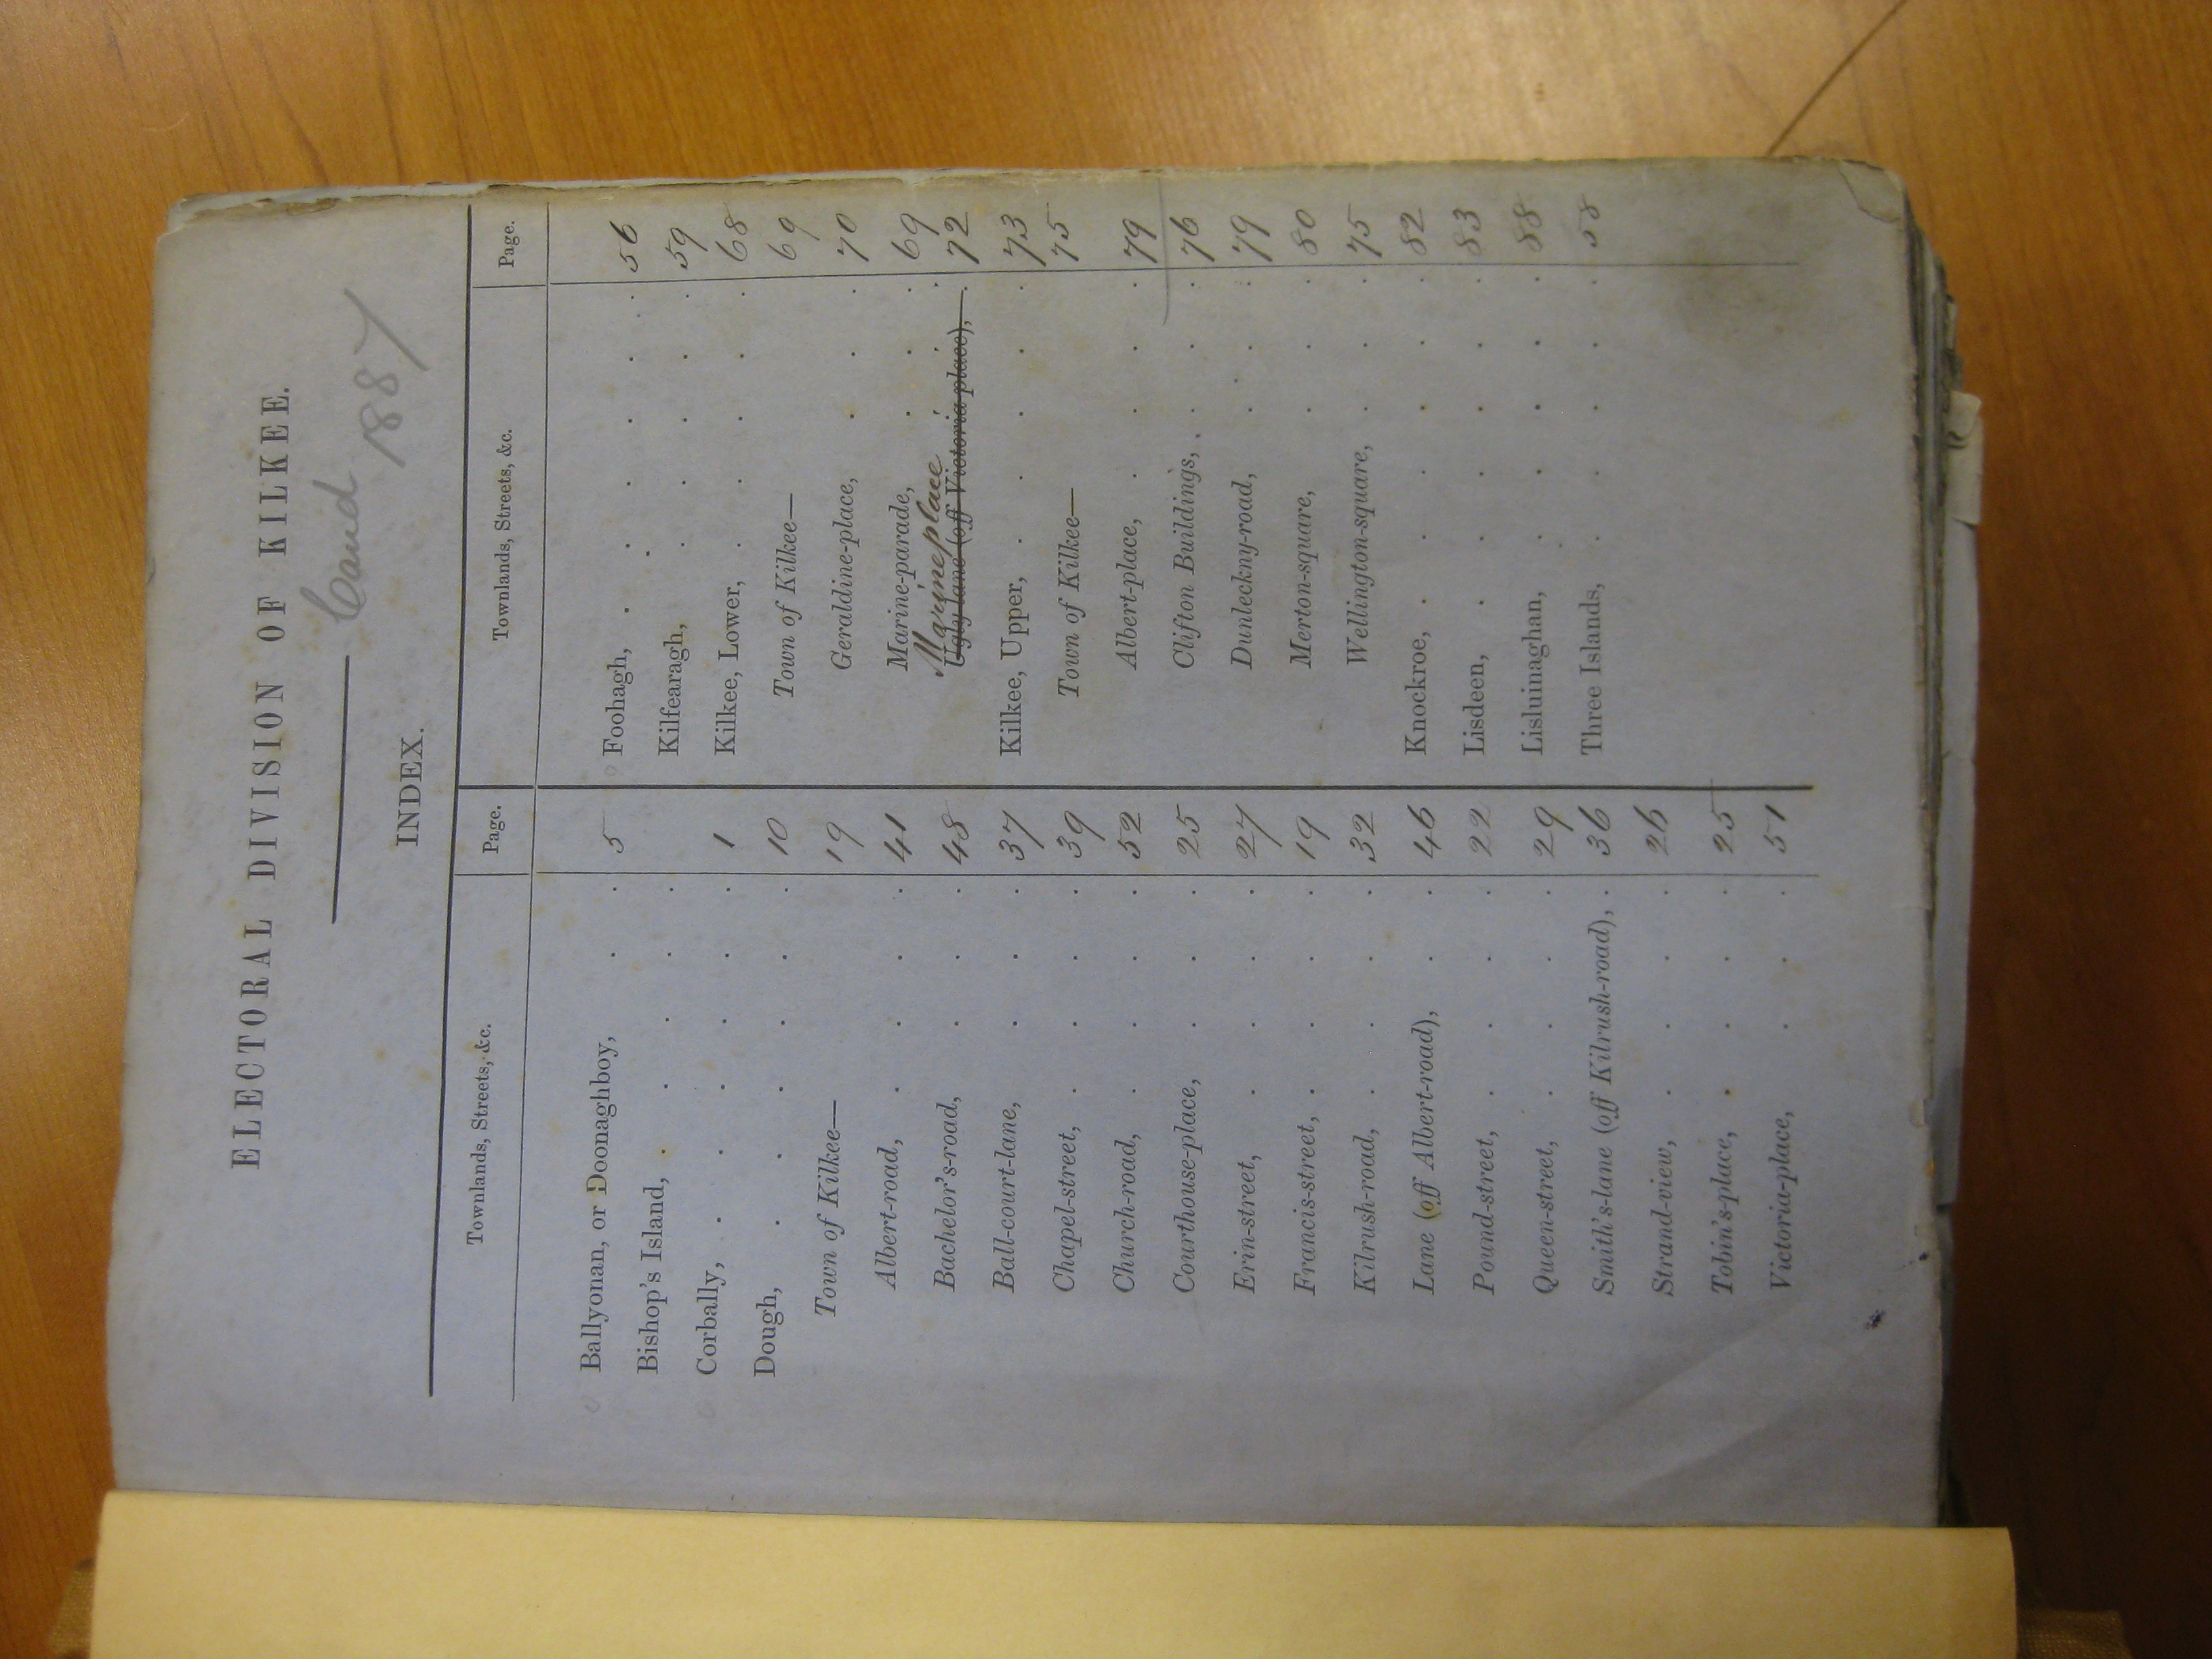 ELECTORAL DIVISION OF KILKEE.
Cancd 1887
INDEX.
Townlands, Streets, &c. Page.
Ballyonan, or Doonaghboy, 5
Bishop's Island,
Corbally, 1
Dough, 10
Town of Kilkee— 19
Albert-road, 41
Bachelor's-road, 48
Ball-court-lane, 37
Chapel-street, 39
Church-road, 52
Courthouse-place, 25
Erin-street, 27
Francis-street, 19
Kilrush-road, 32
Lane (off Albert-road), 46
Pound-street, 22
Queen-street, 29
Smith's-lane (off Kilrush-road), 36
Strand-view, 26
Tobin's-place, 25
Victoria-place, 51
Townlands, Streets, &c. Page.
Foohagh, 56
Kilfearagh, 59
Kilkee, Lower, 68
Town of Kilkee— 69
Geraldine-place, 70
Marine-parade, 69
Marine place
Ugly lane (off Victoria place), 72
Kilkee, Upper, 73
Town of Kilkee— 75
Albert-place, 79
Clifton Buildings, 76
Dunleckny-road, 79
Merton-square, 80
Wellington-square, 75
Knockroe, 82
Lisdeen, 83
Lisluinaghan, 88
Three Islands, 58